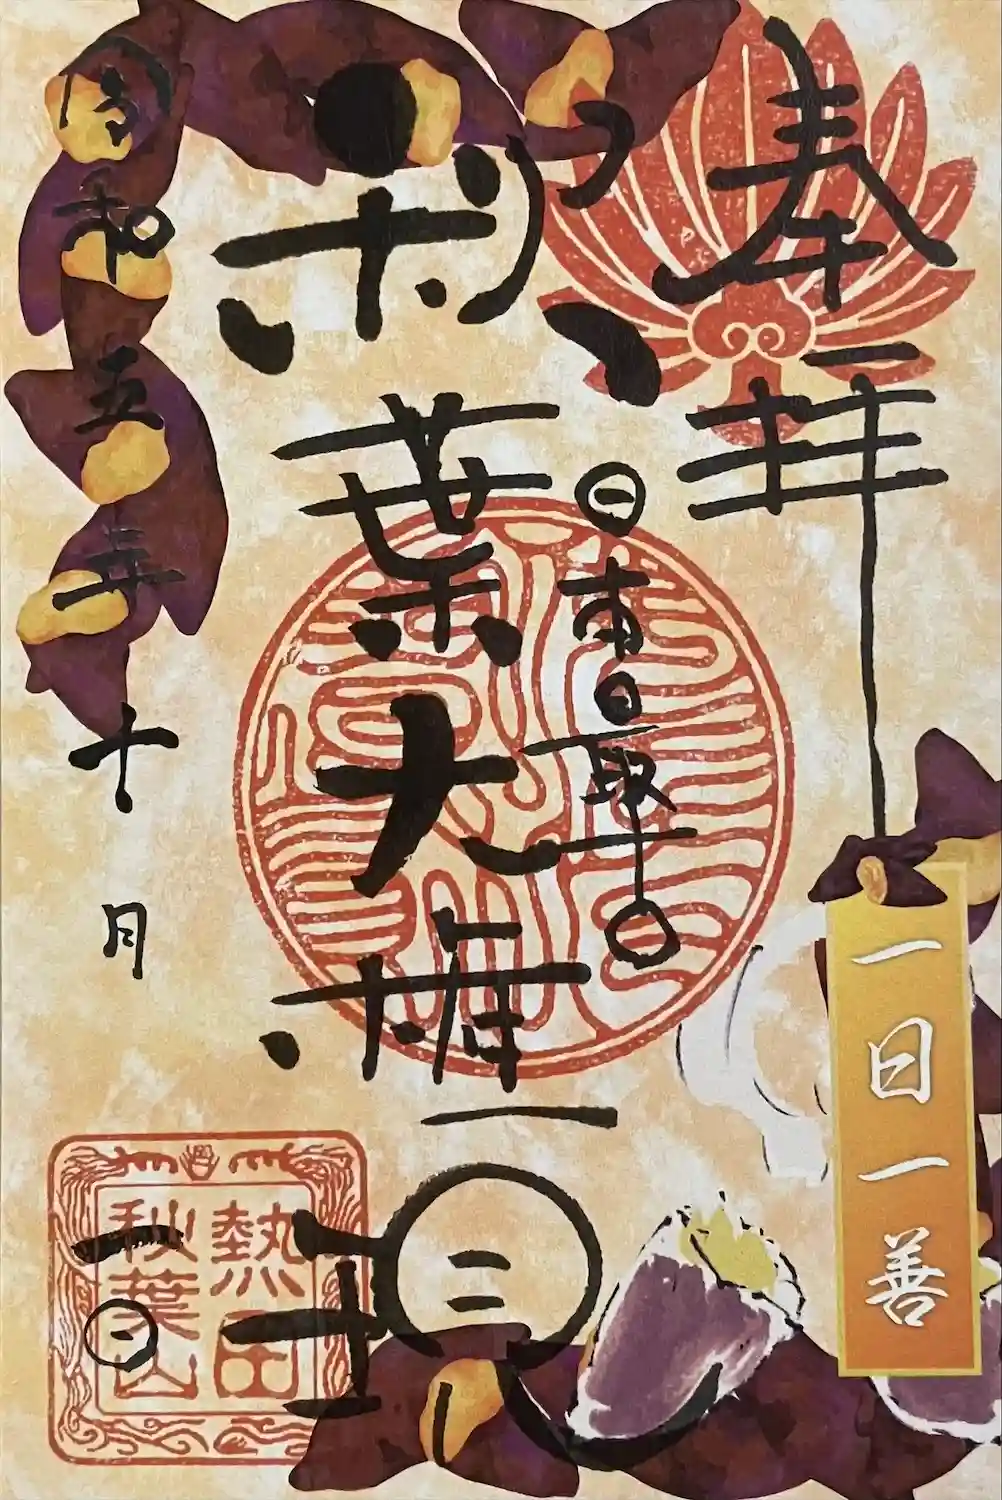 奉拝
日本最古
秋葉大権現
令和五年十月一日
一日一善
熱田
秋葉山